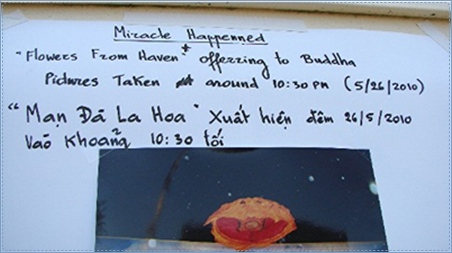 Miracle Happenned
"Flowers From Haven" offerring to Buddha
Pictures Taken around 10:30 PM (5/26/2010)
"Mạn Đà La Hoa" Xuất hiện đêm 26/5/2010
Vào Khoảng 10:30 tối